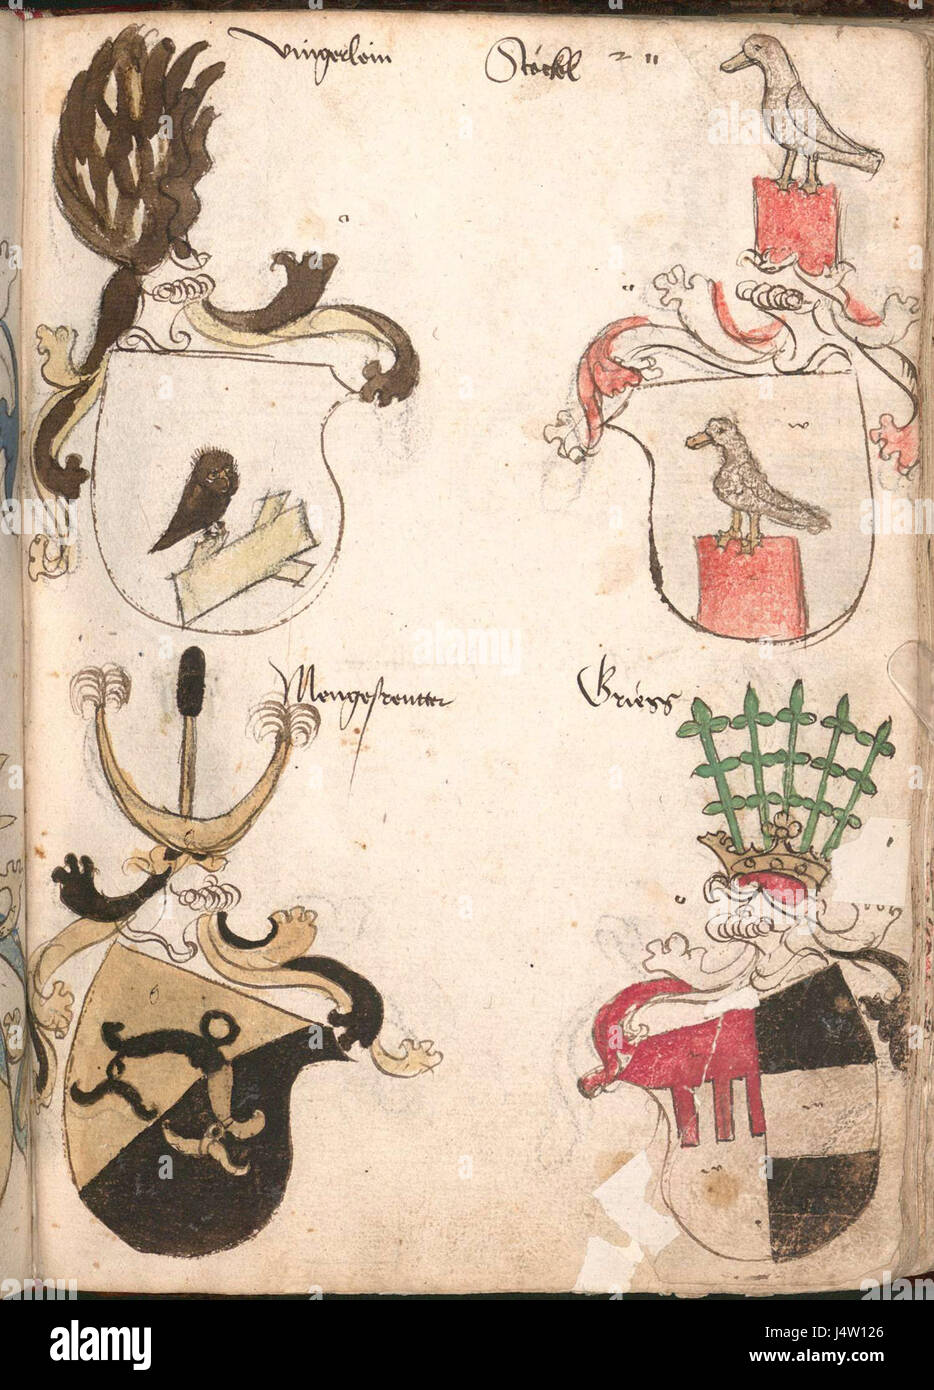 vingerlein
Stöckl 2 "
Mengesreutter
Griess
alamy
alamy
Image ID: J4W126
www.alamy.com